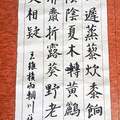 遲蒸藜炊黍餉
陰夏木轉黃鸝
齋折露葵野老
相疑
王維積雨輞川